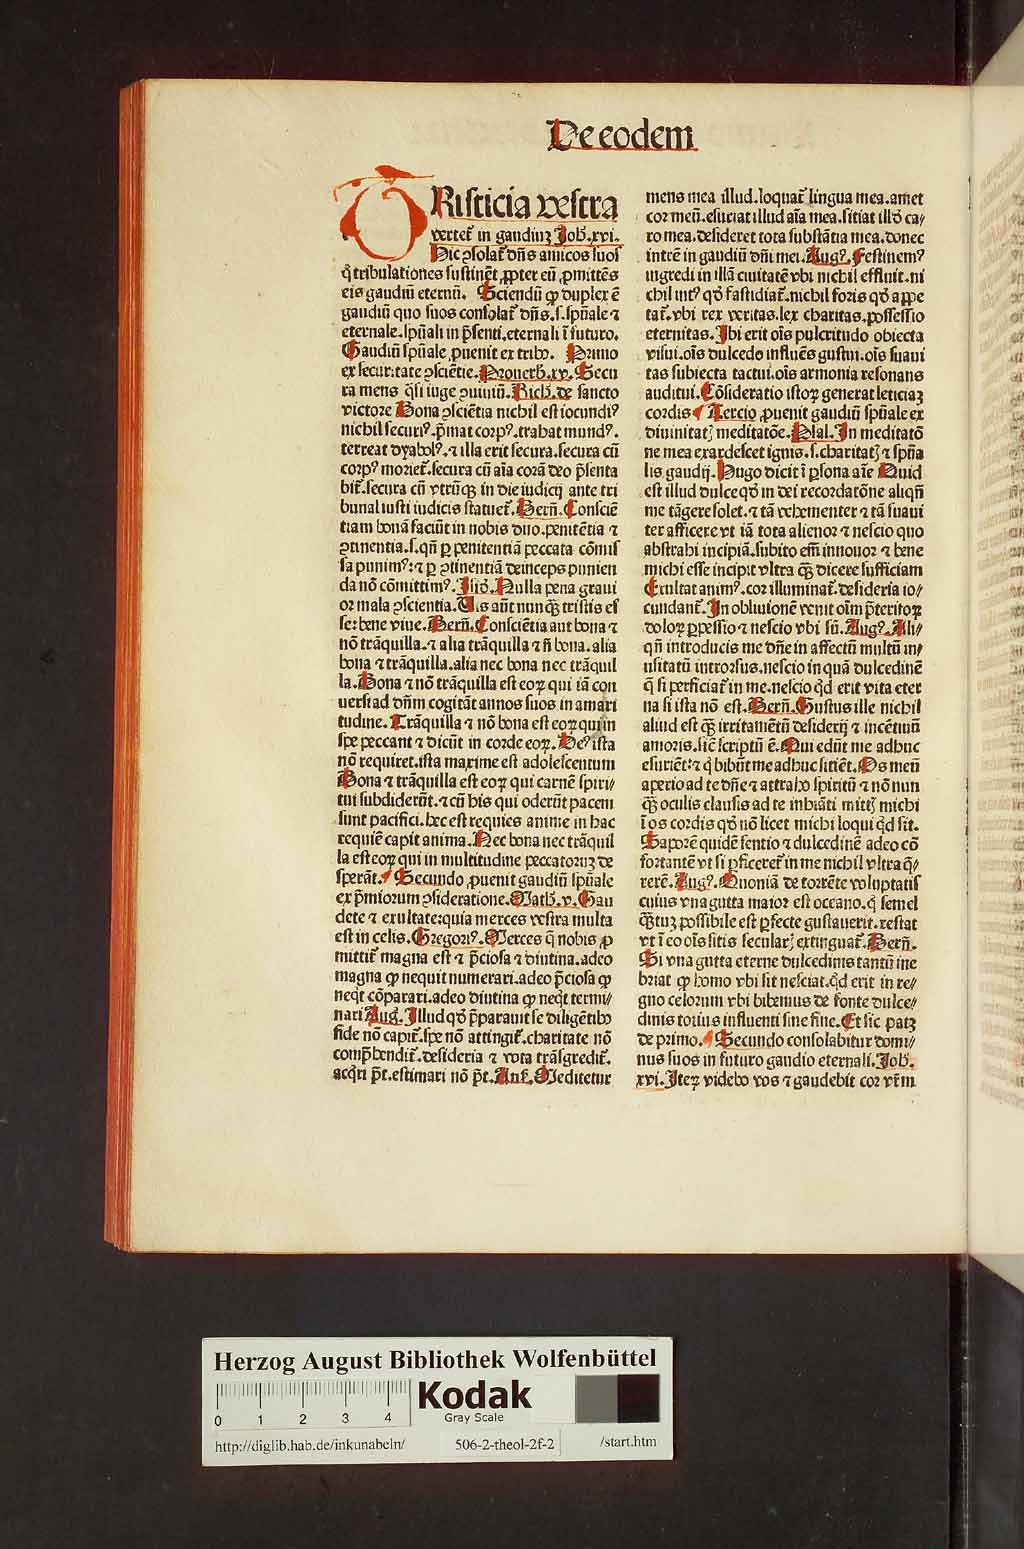 De eodem
TRisticia vestra
vertet᷑ in gaudiuꝫ Joh̄.xvi.
Hic ꝯsolat᷑ dn̄s amicos suos
q̇ tribulationes sustinēt ꝓpter eū ,ꝓmittēs
eis gaudiū eternū. Sciendū ꝙ duplex ē
gaudiū quo suos consolat᷑ dn̄s.s.spūale ⁊
eternale.spūali in p̄senti.eternali ī futuro.
Gaudiū spūale ꝓuenit ex tribꝰ. Primo
ex securitate ꝯsciētie.Prouerb̄.xv.Secu
ra mens q̄si iuge ꝯuiuiū.Rich̄.de sancto
victore Bona ꝯsciētia nichil est iocundiꝰ
nichil securiꝰ.p̄mat corpꝰ.trahat mundꝰ.
terreat dyabolꝰ.⁊ illa erit secura.secura cū
corpꝰ moriet᷑.secura cū aīa corā deo p̄senta
bit᷑.secura cū vtrūqꝫ in die iudicij ante tri
bunal iusti iudicis statuet᷑.Bern̄.Consciē
tiam bonā faciūt in nobis duo.penitētia ⁊
ꝯtinentia.s.qn̄ ꝑ penitentiā peccata cōmis
sa punimꝰ:⁊ ꝑ ꝯtinentiā deinceps punien
da nō cōmittimꝰ.Jsid̄.Nulla pena graui
or mala ꝯscientia.Uis aūt nunqꝫ tristis es
se:bene viue.Bern̄.Consciētia aut bona ⁊
nō trāquilla.⁊ alia trāquilla ⁊ n̄ bona.alia
bona ⁊ trāquilla.alia nec bona nec trāquil
la.Bona ⁊ nō trāquilla est eoꝝ qui iā con
uersi ad dn̄m cogitāt annos suos in amari
tudine.Trāquilla ⁊ nō bona est eoꝝ qui in
spe peccant ⁊ dicūt in corde eoꝝ.Deꝰ ista
nō requiret.ista maxime est adolescentum
Bona ⁊ trāquilla est eoꝝ qui carnē spiri⸗
tui subdiderūt.⁊ cū his qui oderūt pacem
sunt pacifici.hec est requies anime in hac
requiē capit anima.Nec bona nec trāquil
la est eoꝝ qui in multitudine peccatoruꝫ de
sperāt. Secundo ꝓuenit gaudiū spūale
ex p̄miorum ꝯsideratione.Math̄.v.Gau
dete ⁊ exultate:quia merces vestra multa
est in celis.Gregoriꝰ.Merces q̄ nobis ꝓ
mittit᷑ magna est ⁊ p̄ciosa ⁊ diutina.adeo
magna ꝙ nequit numerari.adeo p̄ciosa ꝙ
neq̇t cōparari.adeo diutina ꝙ neq̇t termi⸗
nari Augꝰ.Illud qd̓ p̄parauit se diligētibꝰ
fide nō capit᷑.spe nō attingit᷑.charitate nō
comp̄hendit᷑.desideria ⁊ vota trāsgredit᷑.
acq̇ri p̄t.estimari nō p̄t.Anß.Meditetur
mens mea illud.loquat᷑ lingua mea.amet
cor meū.esuriat illud aīa mea.sitiat illd̓ ca⸗
ro mea.desideret tota substātia mea.donec
intrē in gaudiū dn̄i mei.Augꝰ.Festinemꝰ
ingredi in illā ciuitatē vbi nichil effluit.ni
chil intꝰ qd̓ fastidiat᷑.nichil foris qd̓ appe
tat᷑.vbi rex veritas.lex charitas.possessio
eternitas.Ibi erit oīs pulcritudo obiecta
visui.oīs dulcedo influēs gustui.oīs suaui
tas subiecta tactui.oīs armonia resonans
auditui.Cōsideratio istoꝝ generat leticiaꝫ
cordis Tercio ꝓuenit gaudiū spūale ex
diuinitatꝭ meditatōe.Psal.In meditatō
ne mea exardescet ignis.s.charitatꝭ ⁊ spūa
lis gaudij.Hugo dicit ī ꝑsona aīe Quid
est illud dulce qd̓ in dei recordatōne aliqn̄
me tāgere solet.⁊ tā vehementer ⁊ tā suaui
ter afficere vt iā tota alienor ⁊ nescio quo
abstrahi incipiā.subito em̄ innouor ⁊ bene
michi esse incipit vltra qꝫ dicere sufficiam
Exultat animꝰ.cor illuminat᷑.desideria io⸗
cundant᷑.In obliuionē venit oīm p̄teritoꝝ
doloꝝ ꝑpessio ⁊ nescio vbi sū.Augꝰ.Ali⸗
qn̄ introducis me dn̄e in affectū multū in⸗
usitatū introrsus.nescio in quā dulcedinē
q̄ si perficiat᷑ in me.nescio qd̓ erit vita eter
na si ista nō est.Bern̄.Gustus ille nichil
aliud est qꝫ irritamētū desiderij ⁊ incētiuū
amoris.sic̄ scriptū ē.Qui edūt me adhuc
esuriēt:⁊ q̇ bibūt me adhuc sitiēt.Os meū
aperio ad te dn̄e ⁊ attraho spiritū ⁊ nō nun
qꝫ oculis clausis ad te inhiāti mittꝭ michi
ī os cordis qd̓ nō licet michi loqui qd̓ sit.
Saporē quidē sentio ⁊ dulcedinē adeo cō
fortantē vt si ꝑficeret᷑ in me nichil vltra q̄⸗
rerē.Augꝰ.Quoniā de torrēte voluptatis
cuius vna gutta maior est oceano.q̇ semel
qꝫtuꝫ possibile est ꝑfecte gustauerit.restat
vt ī eo oīs sitis secularꝭ extinguat᷑.Bern̄.
Si vna gutta eterne dulcedinis tantū ine
briat ꝙ homo vbi sit nesciat.qd̓ erit in re⸗
gno celorum vbi bibemus de fonte dulce⸗
dinis totius influenti sine fine.Et sic patꝫ
de primo. Secundo consolabitur domi⸗
nus suos in futuro gaudio eternali.Joh̄.
xvi.Iteꝝ videbo vos ⁊ gaudebit cor vr̄m
Herzog August Bibliothek Wolfenbüttel
0 1 2 3 4
Kodak
Gray Scale
http://diglib.hab.de/inkunabeln/ 506-2-theol-2f-2 /start.htm